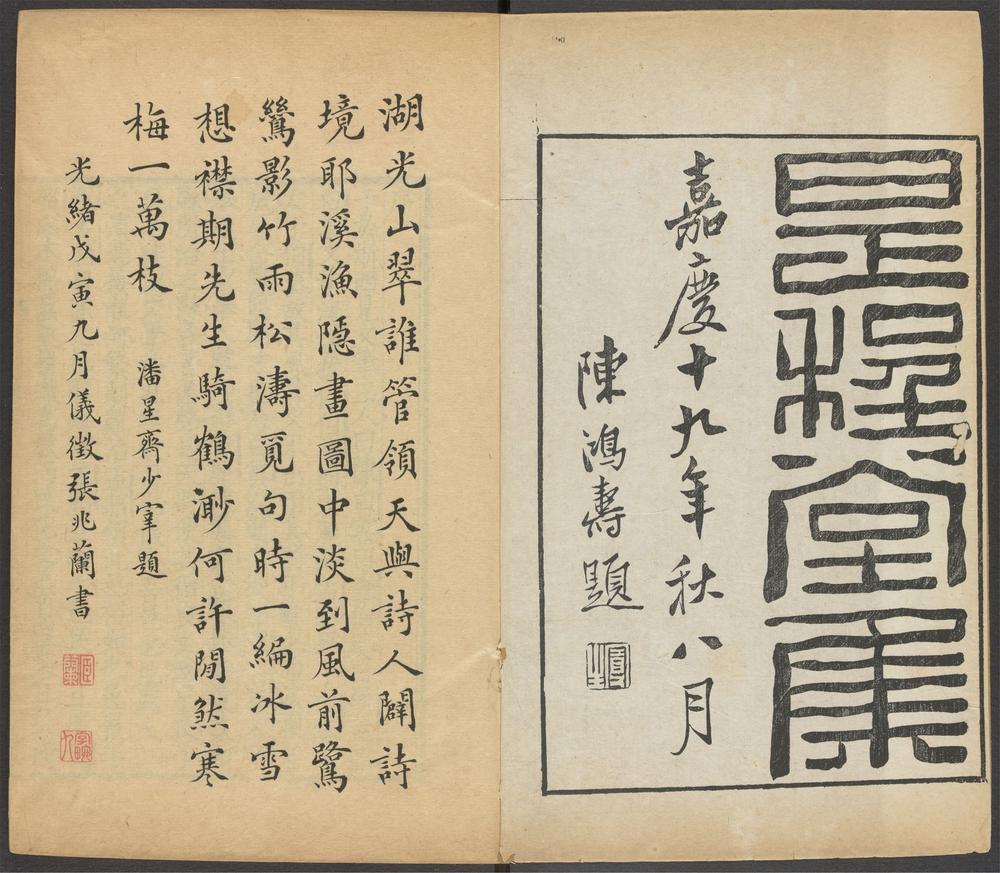 是程堂集
嘉慶十九年秋八月
陳鴻壽題
湖光山翠誰管領天與詩人闢詩
境耶溪漁隱畫圖中淡到風前鷺
鷥影竹雨松濤覓句時一編冰雪
想襟期先生騎鶴渺何許閒然寒
梅一萬枝 潘星齋少宰題
光緒戊寅九月儀徵張兆蘭書